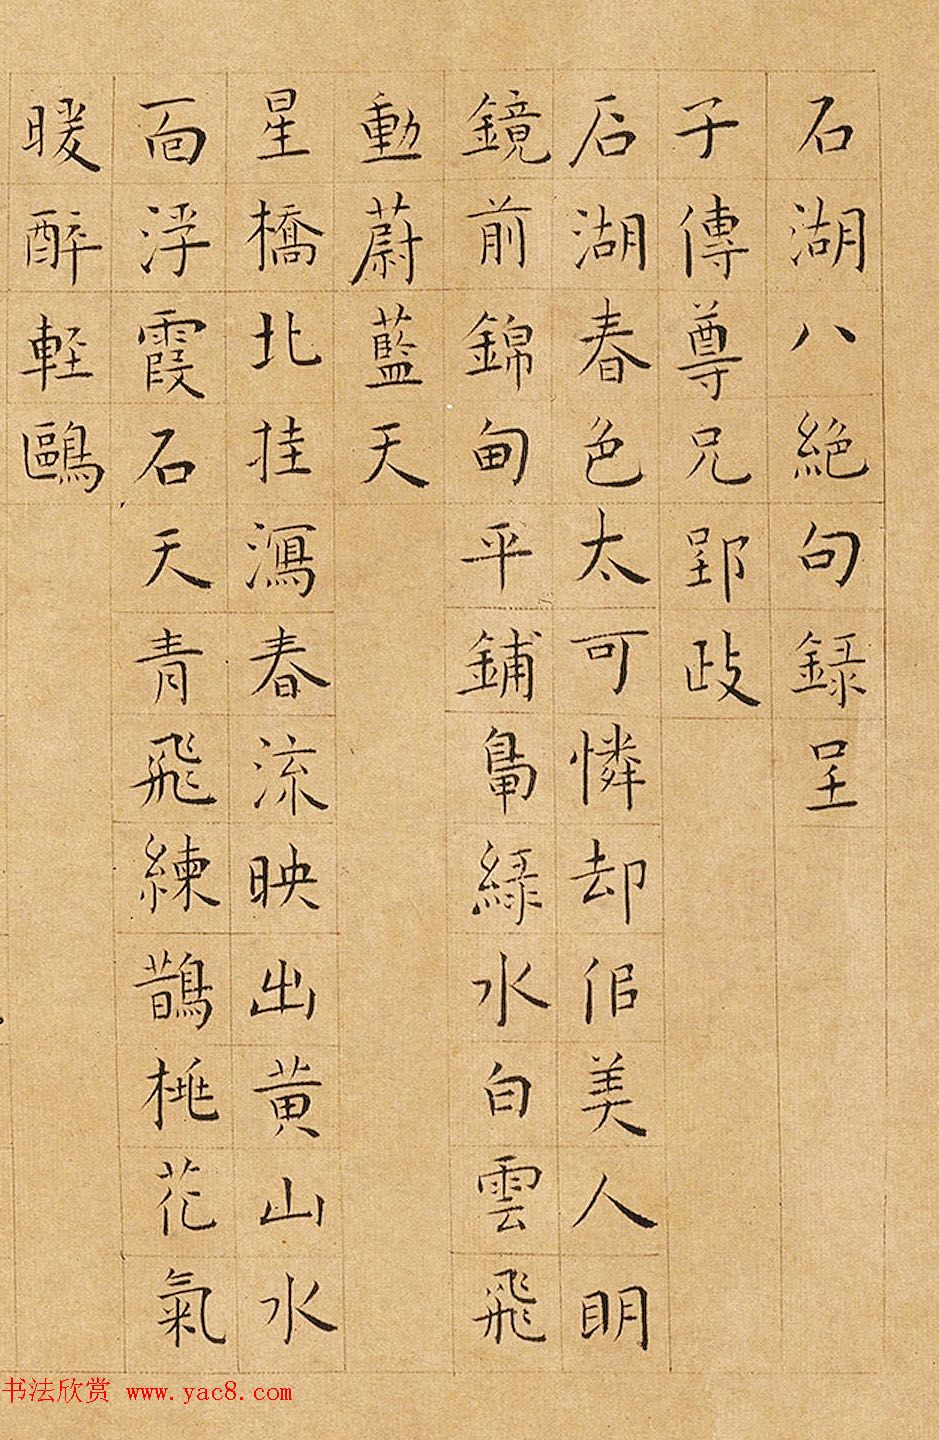 石湖八絶句録呈
子傳尊兄郢政
石湖春色太可憐却佀美人明
鏡前錦甸平鋪鴨綠水白雲飛
動蔚藍天
星橋北挂瀉春流映出黄山水
面浮霞石天青飛練鵲桃花氣
暖醉輕鷗
书法欣赏 www.yac8.com